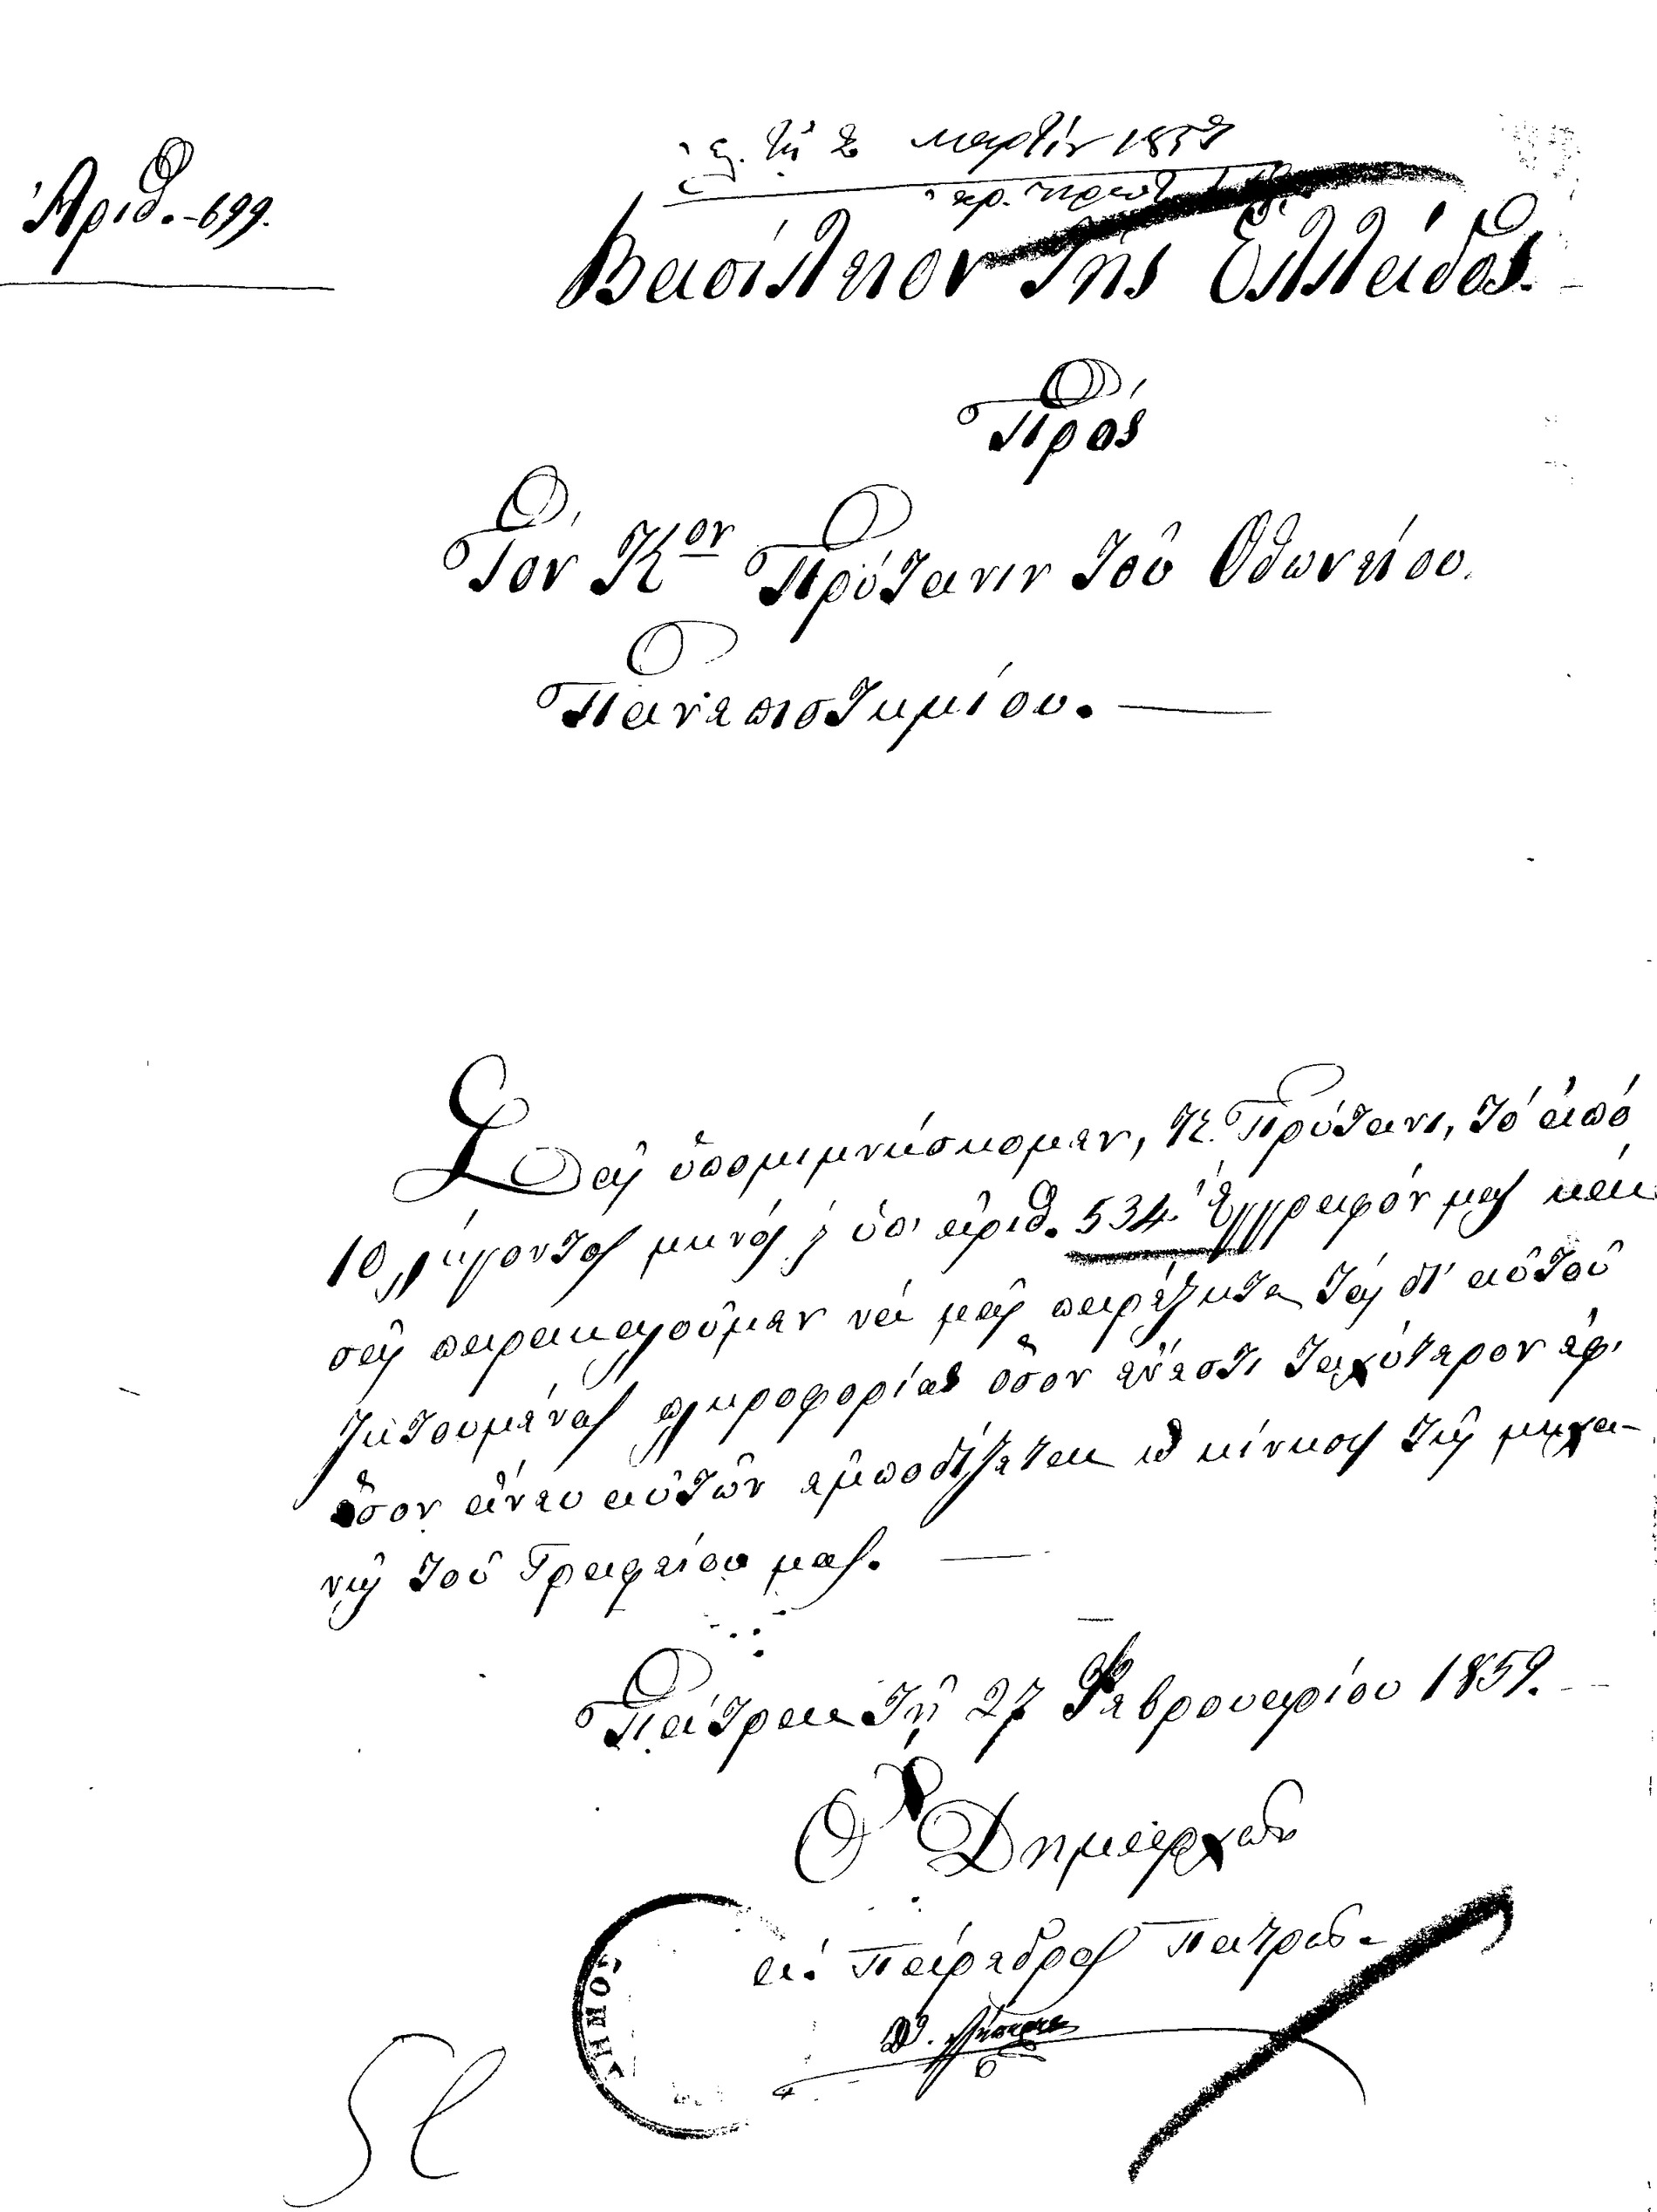 τῇ 2 Μαρτίου 1859
ἀρ. πρωτ.
Ἀριθ. 699.
Βασίλειον τῆς Ἑλλάδος.
Πρὸς
Τὸν Κον Πρύτανιν τοῦ Ὀθωνείου
Πανεπιστημίου. —
Σᾶς ὑπομιμνήσκομεν, Κ. Πρύτανι, τὸ ἀπὸ
10 λήγοντος μηνὸς ὑπ' ἀριθ. 534 ἔγγραφόν μας καὶ
σᾶς παρακαλοῦμεν νὰ μᾶς παρέξητε τὰς δι' αὐτοῦ
ζητουμένας πληροφορίας ὅσον ἔνεστι ταχύτερον ἐφ'
ὅσον ἄνευ αὐτῶν ἐμποδίζεται ἡ κίνησις τῆς μηχα-
νῆς τοῦ Γραφείου μας. —
Πάτραι τῇ 27 Φεβρουαρίου 1859.
Ὁ Δημαρχῶν
α. Πάρεδρος Πατρῶν
ΔΗΜΟΣ